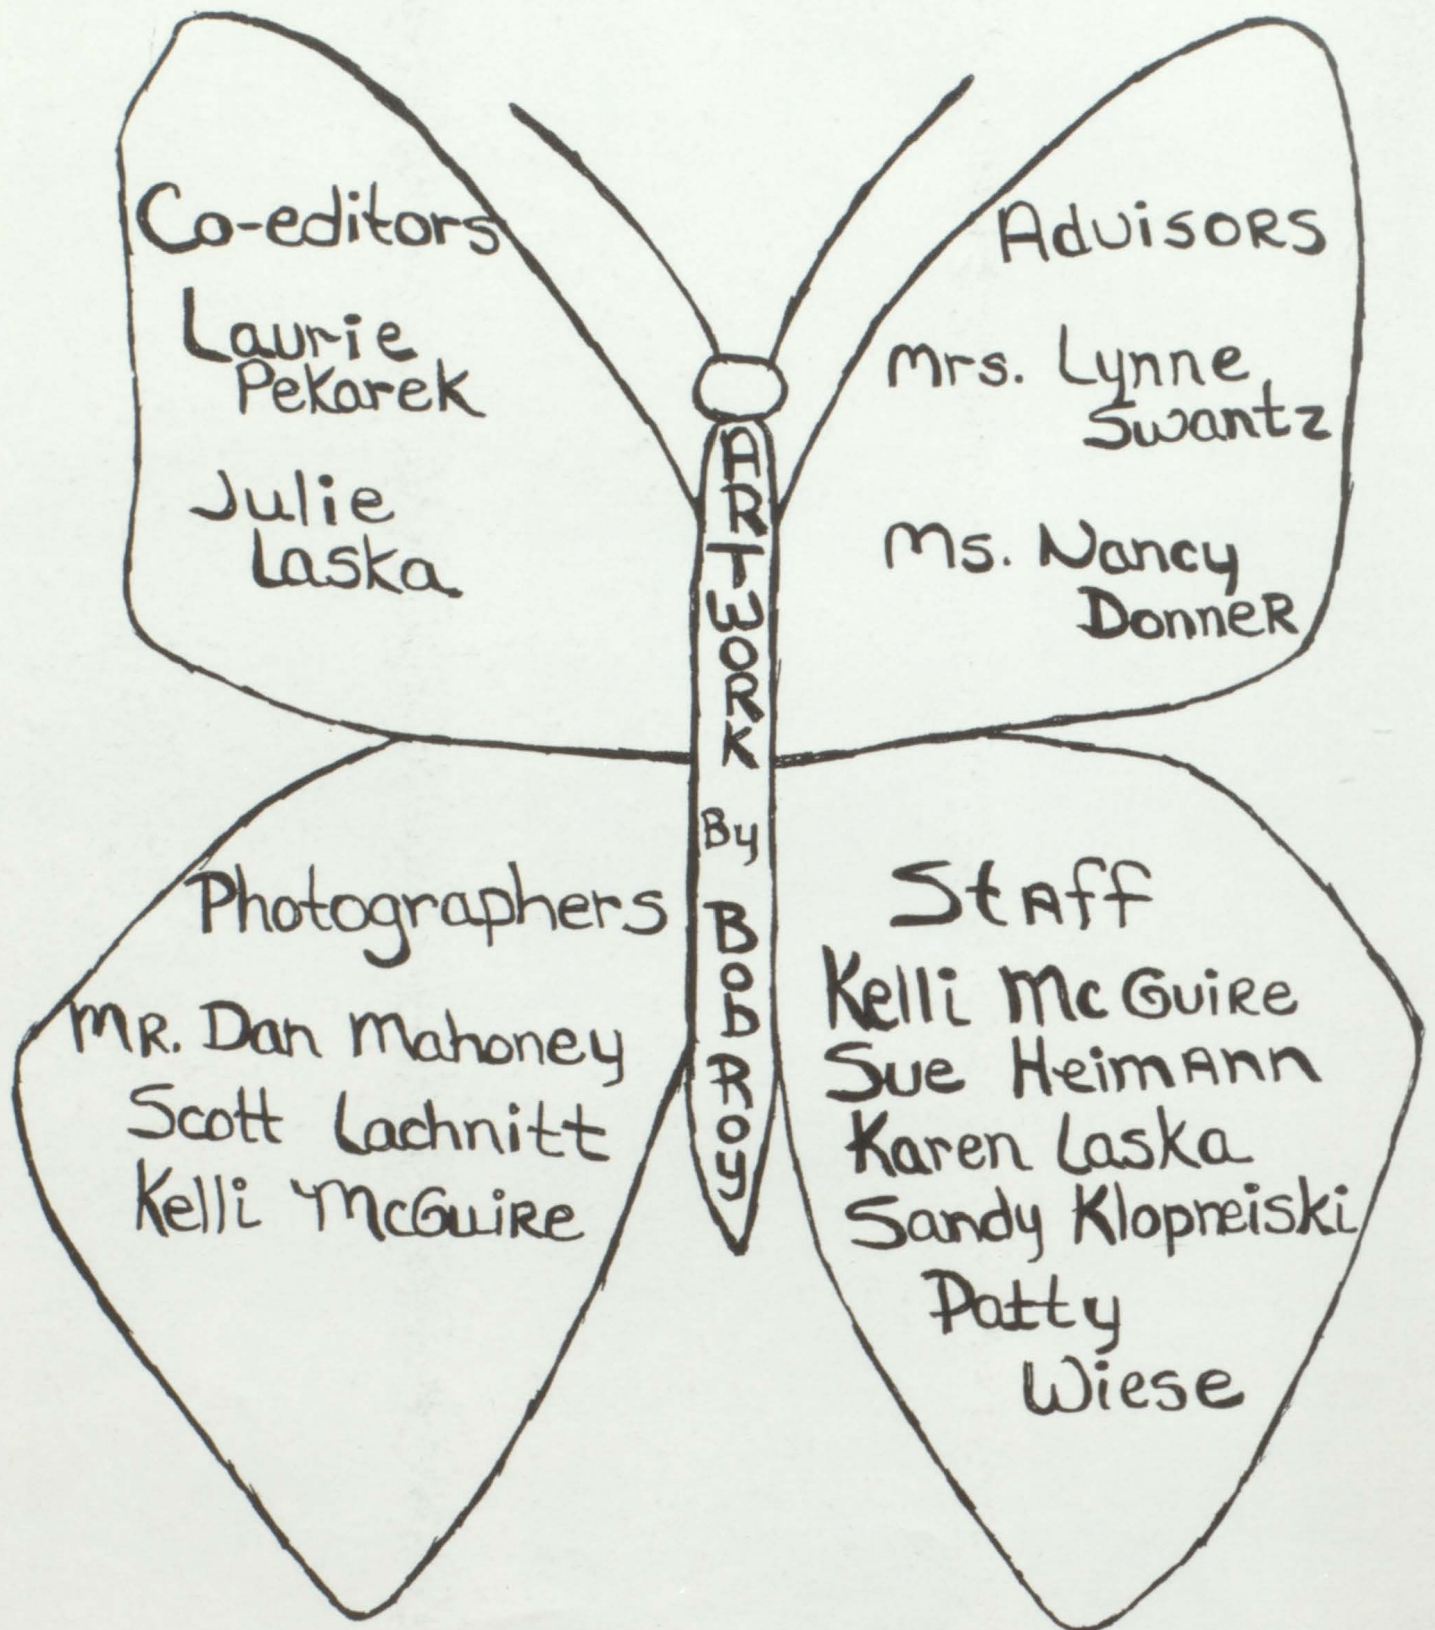 Co-editors
Laurie
Pekarek
Julie
Laska
Advisors
Mrs. Lynne
Swantz
Ms. Nancy
Donner
ARTWORK
By
Bob
Roy
Photographers
MR. Dan Mahoney
Scott Lachnitt
Kelli McGuire
Staff
Kelli McGuire
Sue Heimann
Karen Laska
Sandy Klopneiski
Patty
Wiese